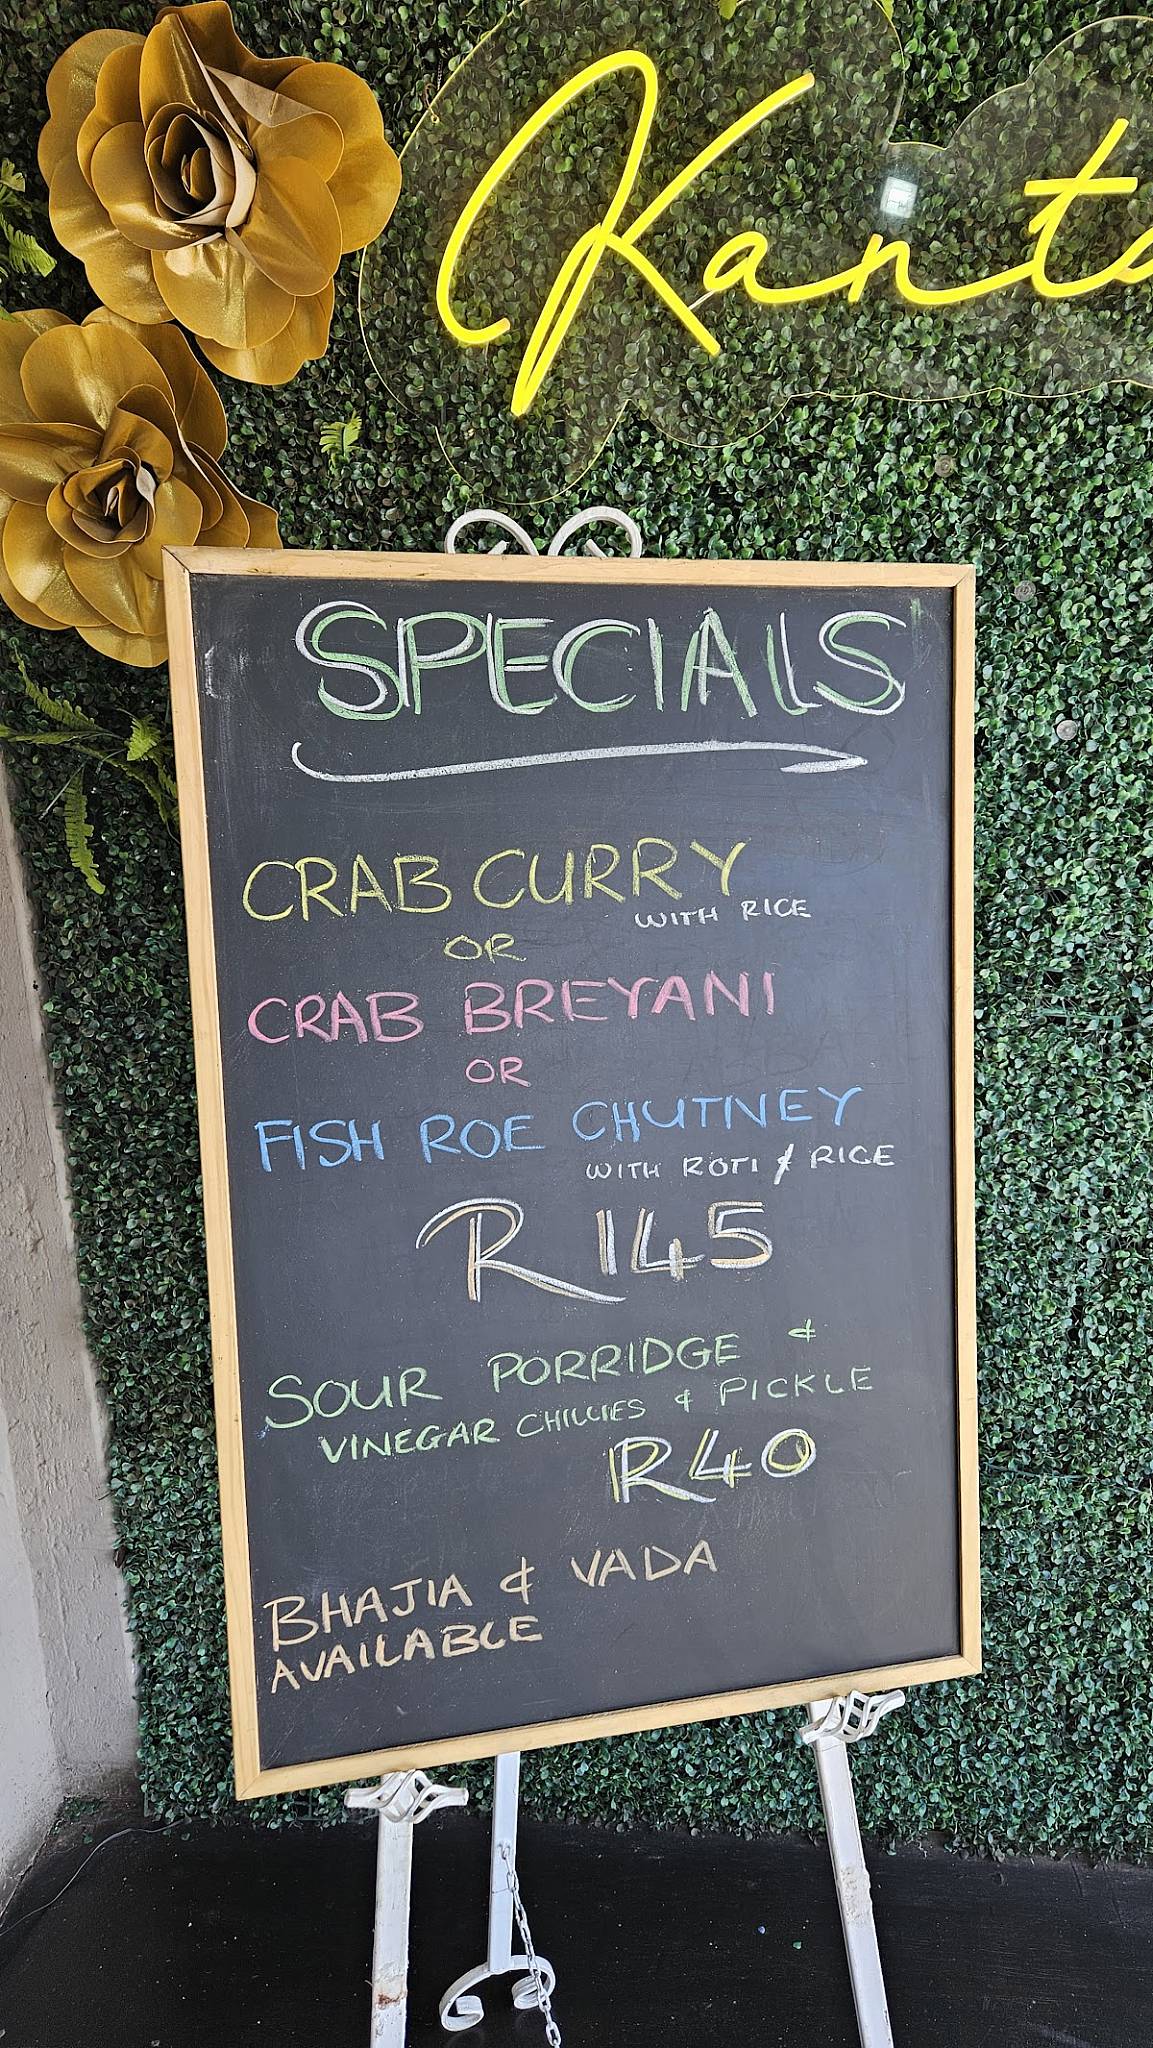 SPECIALS
CRAB CURRY
WITH RICE
OR
CRAB BREYANI
OR
FISH ROE CHUTNEY
WITH ROTI & RICE
R145
SOUR PORRIDGE &
VINEGAR CHILLIES & PICKLE
R40
BHAJIA & VADA
AVAILABLE